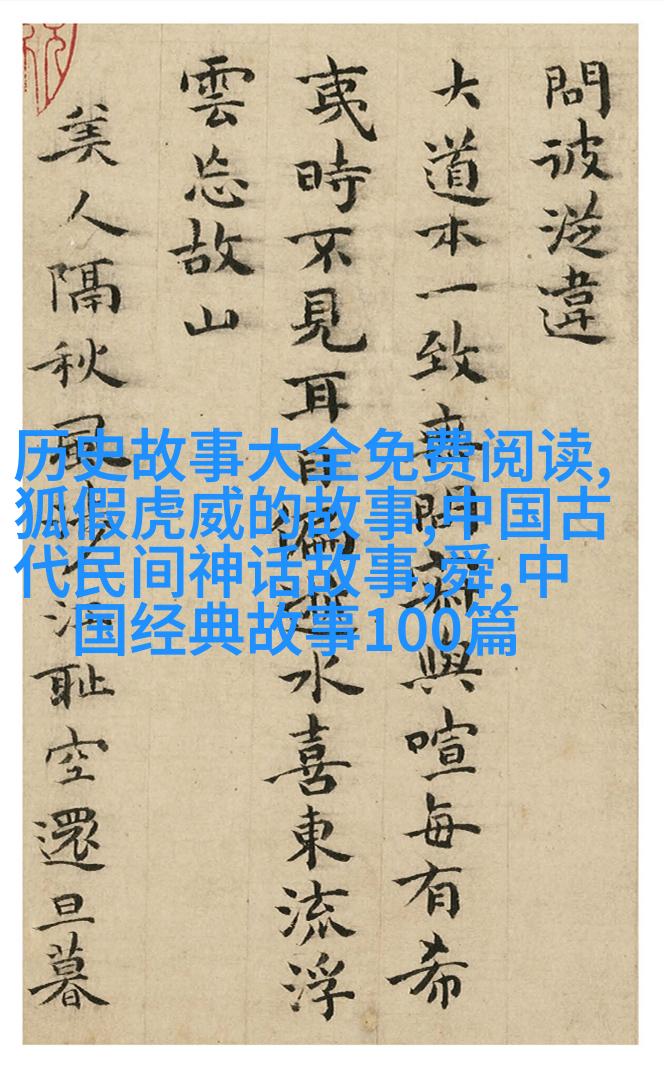 問彼違
大道本一致與喧每有希
夷時不見耳目水喜東流浮
雲忘故山
美人隔秋風恥空還旦暮
历史故事大全免费阅读,
狐假虎威的故事,中国古
代民间神话故事,舜,中
国经典故事100篇